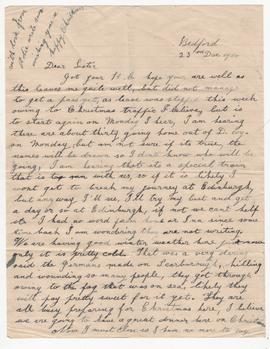 with love from
wishing you a
happy Christmas
Bedford
23rd Dec 19
Dear Sister
Got your P.C. hope you are well as
this leaves me quite well, but did not manage
to get a pass yet, as leave was stopped this week
owing to Christmas traffic I believe, but is
to start again on Monday I hear, I am hearing
there are about thirty going home out of D. Coy.
on Monday, but am not sure if its true, the
names will be drawn so I don't know who will be
going, I am hearing that its a special train
that is to run with us, so if it is likely I
wont get to break my journey at Edinburgh,
but anyway I'll see, I'll try my best and get
a day or so at Edinburgh, if not we cant help
it. I had no word from or Ina since some
time back I am wondering they are not writing.
We are having good winter weather here just now
only it is pretty cold. That was a very daring
raid the Germans made on Scarborough, killing
and wounding so many people, they got through
owing to the fog that was on sea, likely they
will pay sweet for it yet. They are
all busy preparing for Christmas here, I believe
we are going to have a great dinner here on Christmas
Now I must close as I have no more to say